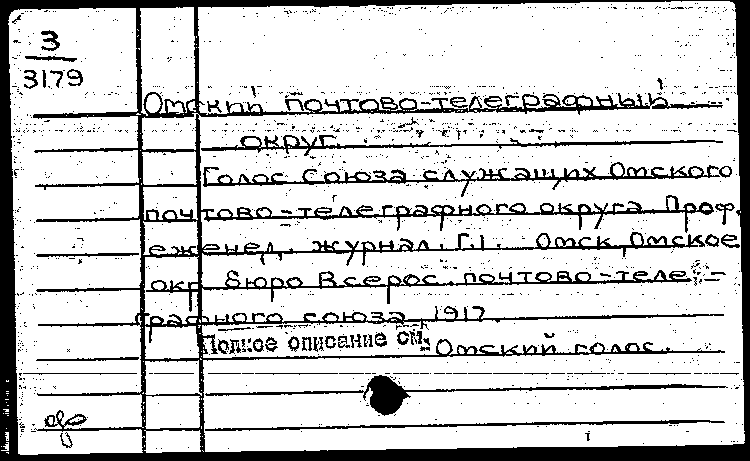 З
3179
Омский почтово-телеграфный
округ.
Голос Союза служащих Омского
почтово-телеграфного округа. Проф.
еженед. журнал. Г.1. Омск, Омское
окр. бюро Всерос. почтово-теле-
графного союза, 1917.
Полное описание см.: Омский голос.